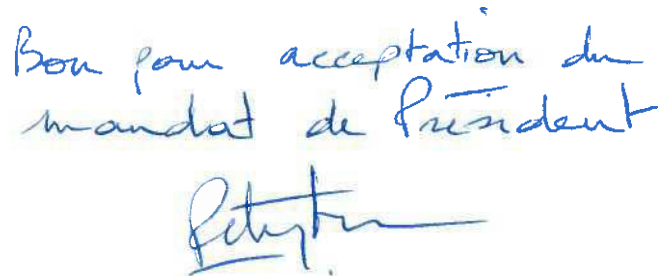 Bon pour acceptation du
mandat de Président